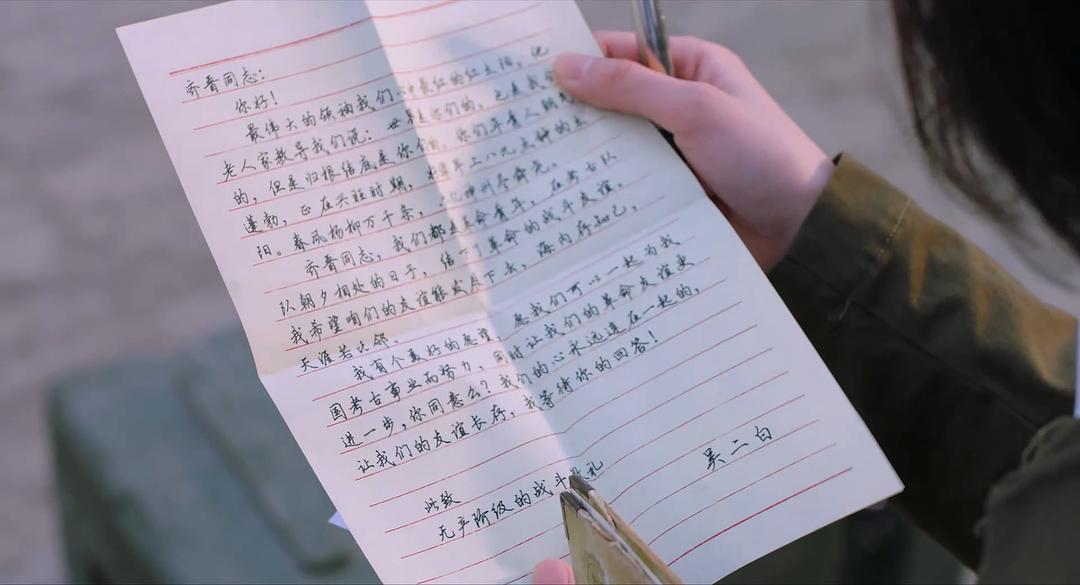 齐晋同志：
你好！
最伟大的领袖我们心中最红的红太阳，他
老人家教导我们说：世界是你们的，也是我们
的，但是归根结底是你们的。你们年青人朝气
蓬勃，正在兴旺时期，好像早上八九点钟的太
阳。春风杨柳万千条，六亿神州尽舜尧。
齐晋同志，我们都是革命青年，在考古队
队朝夕相处的日子，结下了革命的战斗友谊。
我希望咱们的友谊能发展下去，海内存知己，
天涯若比邻。
我有个美好的愿望，愿我们可以一起为我
国考古事业而努力，同时让我们的革命友谊更
进一步，你同意么？我们的心永远连在一起的，
让我们的友谊长存，我等待你的回答！
此致
无产阶级的战斗敬礼
吴二白